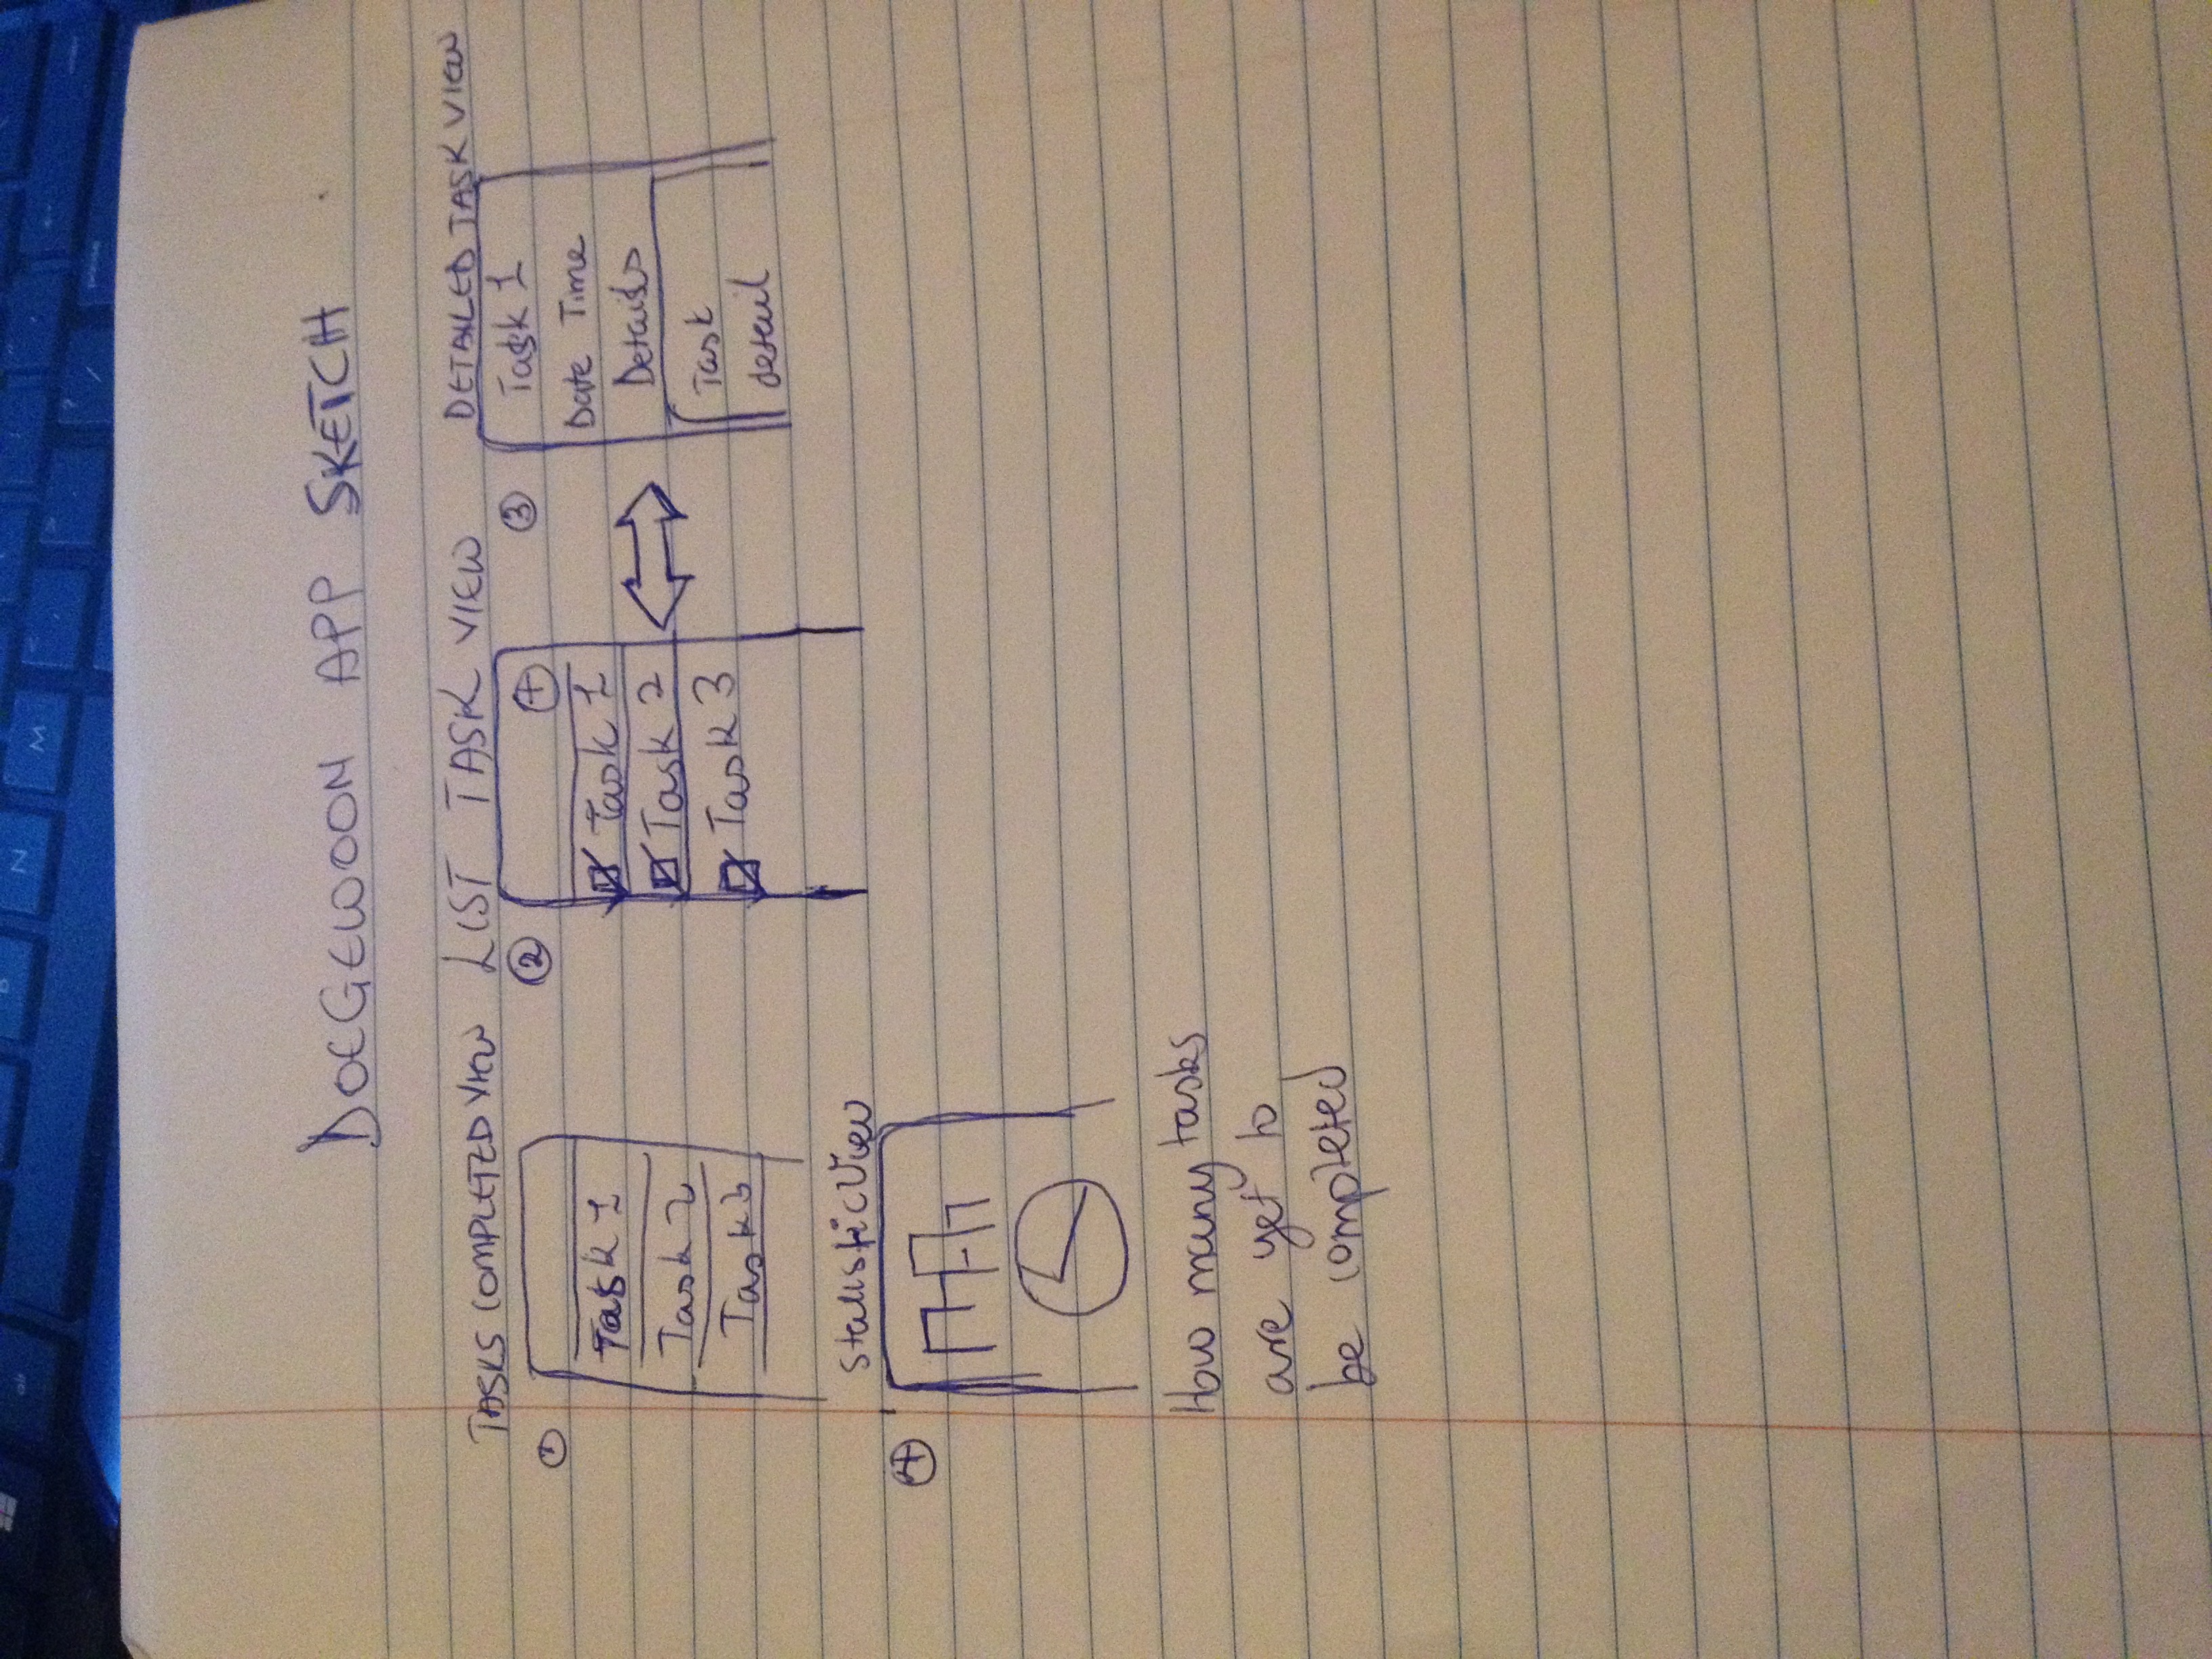 B N M
pause
DOEGEWOOON APP SKETCH
TASKS COMPLETED VIEW
1
Task 1
Task 2
Task 3
LIST TASK VIEW
2
+
Task 1
Task 2
Task 3
DETAILED TASK VIEW
3
Task 1
Date Time
Details
Task
detail
Statistic View
4
How many tasks
are yet to
be completed